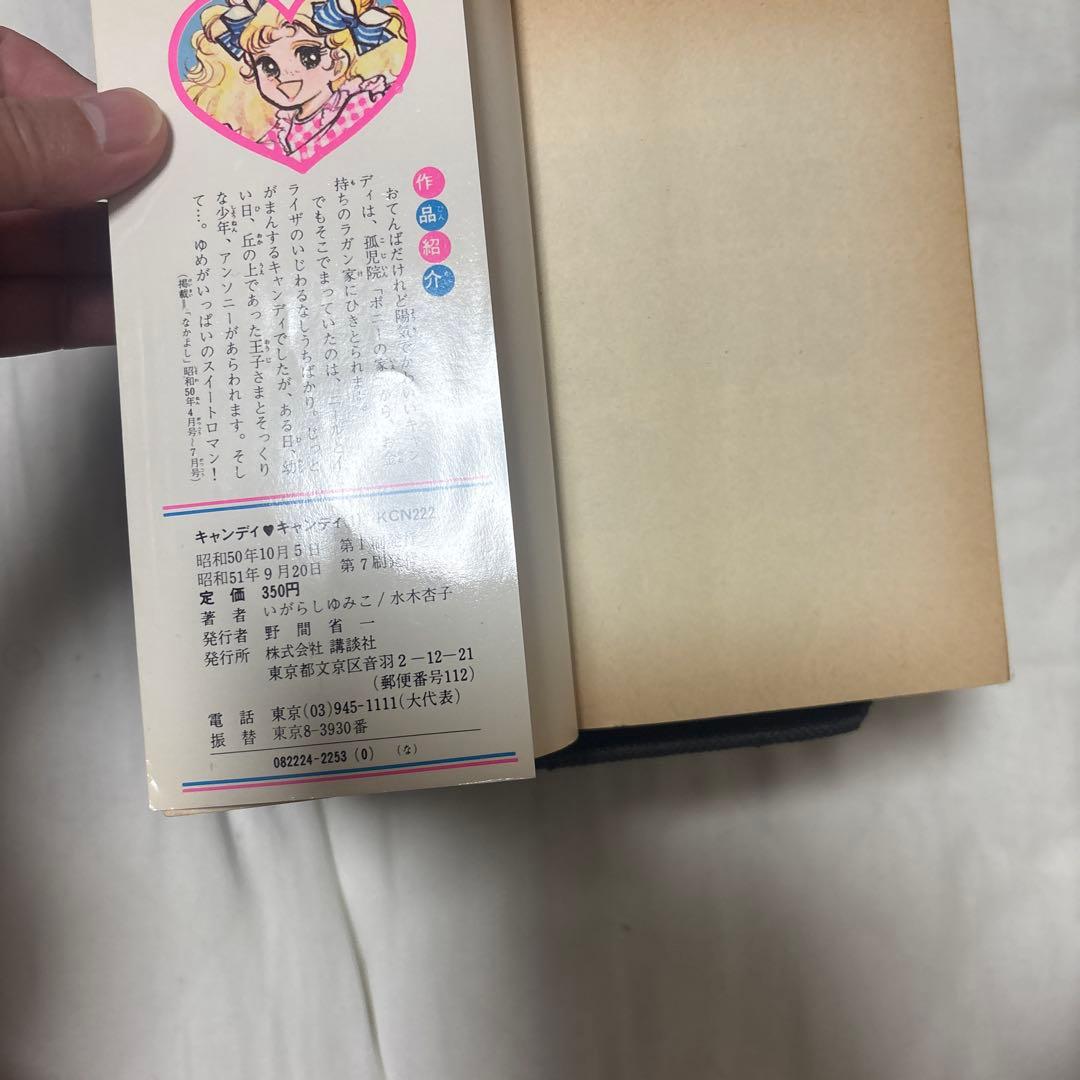 作品紹介
おてんばだけれど陽気でかわいいキャン
ディは、孤児院「ポニーの家」から、お金
持ちのラガン家にひきとられます。
でもそこでまっていたのは、ニールとイ
ライザのいじわるなしうちばかり。じっと
がまんするキャンディでしたが、ある日、幼
い日、丘の上であった王子さまとそっくり
な少年、アンソニーがあらわれます。そし
て…。ゆめがいっぱいのスイートロマン!
(掲載=「なかよし」昭和50年4月号~7月号)
キャンディ♥キャンディ KCN222
昭和50年10月5日 第1刷発行
昭和51年9月20日 第7刷発行
定価 350円
著者 いがらしゆみこ/水木杏子
発行者 野間省一
発行所 株式会社 講談社
東京都文京区音羽2-12-21
(郵便番号112)
電話 東京(03)945-1111(大代表)
振替 東京8-3930番
082224-2253(0) (な)